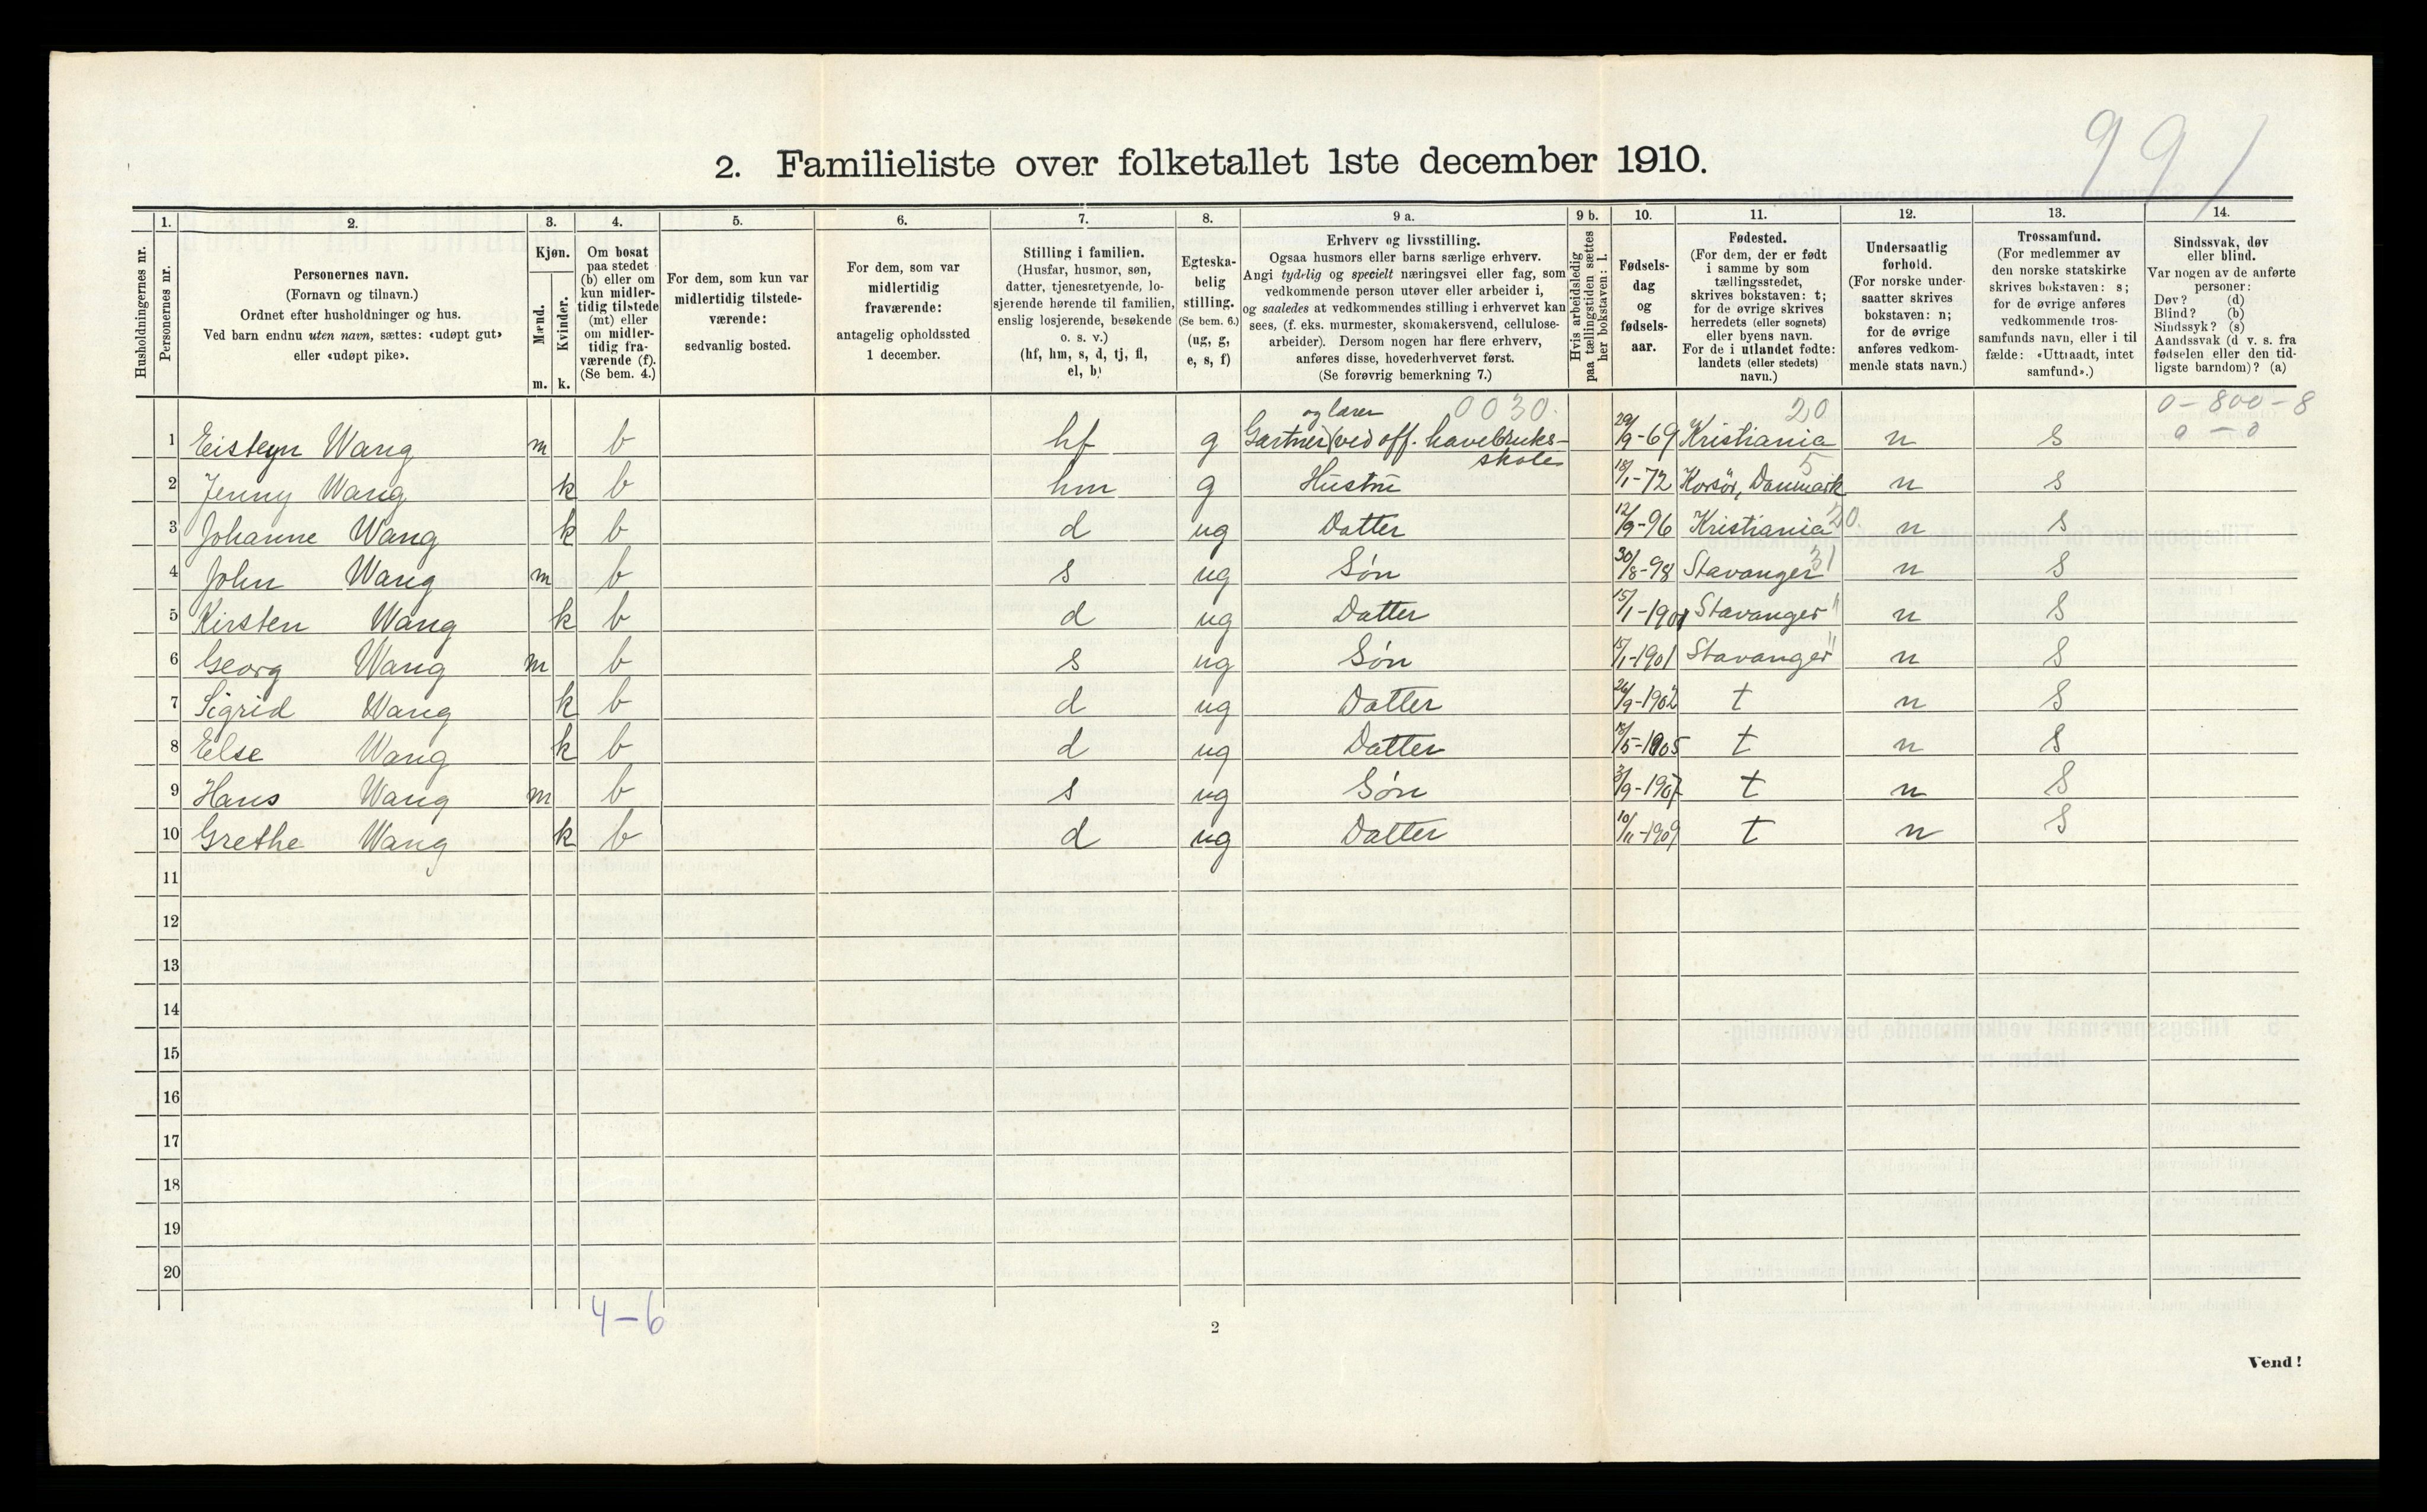 991
2. Familieliste over folketallet 1ste december 1910.
Husholdningernes nr.
1. Personernes nr.
2. Personernes navn.
(Fornavn og tilnavn.)
Ordnet efter husholdninger og hus.
Ved barn endnu uten navn, sættes: «udøpt gut»
eller «udøpt pike».
3. Kjøn.
Mænd. Kvinder.
m. k.
4. Om bosat
paa stedet
(b) eller om
kun midler-
tidig tilstede
(mt) eller
om midler-
tidig fra-
værende (f).
(Se bem. 4.)
5. For dem, som kun var
midlertidig tilstede-
værende:
sedvanlig bosted.
6. For dem, som var
midlertidig
fraværende:
antagelig opholdssted
1 december.
7. Stilling i familien.
(Husfar, husmor, søn,
datter, tjenestetyende, lo-
sjerende hørende til familien,
enslig losjerende, besøkende
o. s. v.)
(hf, hm, s, d, tj, fl,
el, b)
8. Egteska-
belig
stilling.
(Se bem. 6.)
(ug, g,
e, s, f)
9 a. Erhverv og livsstilling.
Ogsaa husmors eller barns særlige erhverv.
Angi tydelig og specielt næringsvei eller fag, som
vedkommende person utøver eller arbeider i,
og saaledes at vedkommendes stilling i erhvervet kan
sees, (f. eks. murmester, skomakersvend, cellulose-
arbeider). Dersom nogen har flere erhverv,
anføres disse, hovederhvervet først.
(Se forøvrig bemerkning 7.)
9 b. Hvis arbeidsledig
paa tællingstiden sættes
her bokstaven: l.
10. Fødsels-
dag
og
fødsels-
aar.
11. Fødested.
(For dem, der er født
i samme by som
tællingsstedet,
skrives bokstaven: t;
for de øvrige skrives
herredets (eller sognets)
eller byens navn.
For de i utlandet fødte:
landets (eller stedets)
navn.)
12. Undersaatlig
forhold.
(For norske under-
saatter skrives
bokstaven: n;
for de øvrige
anføres vedkom-
mende stats navn.)
13. Trossamfund.
(For medlemmer av
den norske statskirke
skrives bokstaven: s;
for de øvrige anføres
vedkommende tros-
samfunds navn, eller i til
fælde: «Uttraadt, intet
samfund».)
14. Sindssvak, døv
eller blind.
Var nogen av de anførte
personer:
Døv? (d)
Blind? (b)
Sindssyk? (s)
Aandssvak (d. v. s. fra
fødselen eller den tid-
ligste barndom)? (a)
og lærer 0030. 20 0-800-8
1 Eisteyn Wang m b hf g Gartner (ved off. havebruks- 29/9-69 Kristiania n s 0-0
skole 5
2 Jenny Wang k b hm g Hustru 18/1-72 Korsør, Danmark n s
3 Johanne Wang k b d ug Datter 12/9-96 Kristiania 20. n s
4 John Wang m b s ug Søn 30/8-98 Stavanger 31 n s
5 Kirsten Wang k b d ug Datter 15/1-1901 Stavanger " n s
6 Georg Wang m b s ug Søn 15/1-1901 Stavanger " n s
7 Sigrid Wang k b d ug Datter 26/9-1902 t n s
8 Else Wang k b d ug Datter 18/5-1905 t n s
9 Hans Wang m b s ug Søn 3/9-1907 t n s
10 Grethe Wang k b d ug Datter 10/11-1909 t n s
11
12
13
14
15
16
17
18
19
20
4-6
2
Vend!